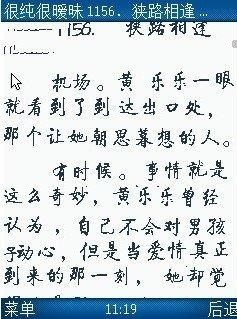 很纯很暧昧 1156. 狭路相逢 ...
1156. 狭路相逢
机场。黄乐乐一眼
就看到了到达出口处，
那个让她朝思暮想的人。
有时候。事情就是
这么奇妙，黄乐乐曾经
认为，自己不会对男孩
子动心，但是当爱情真正
到来的那一刻，她却觉
菜单 11:19 后退